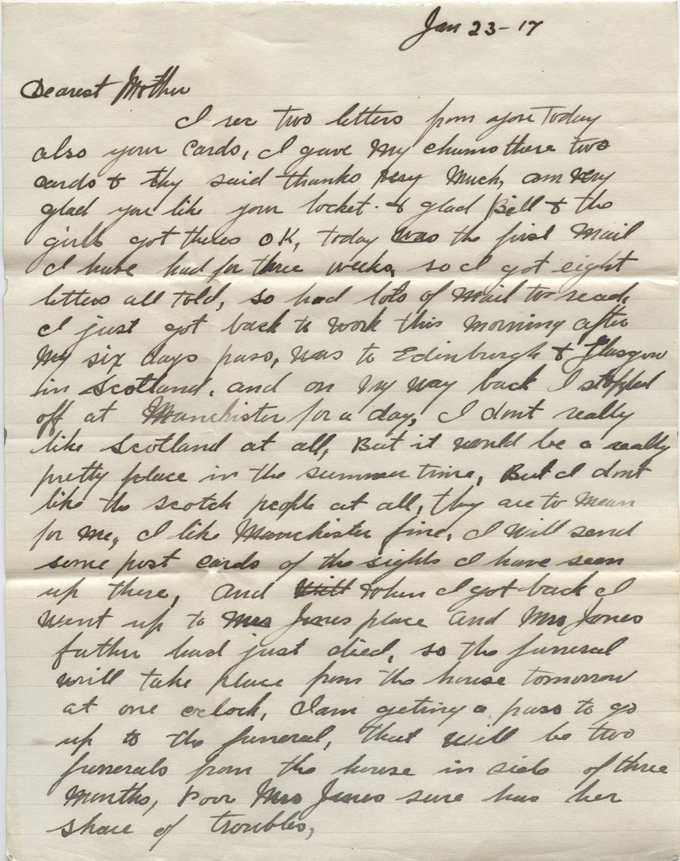 Jan 23-17
Dearest Mother
I rec two letters from you Today
also your cards, I gave my chums there two
cards & thy said thanks very much, am very
glad you like your locket. & glad Bell & the
girls got theres OK, today was the first mail
I have had for three weeks, so I got eight
letters all told, so had lots of mail to read,
I just got back to work this morning after
my six days pass, was to Edinburgh & Glasgow
in Scotland. and on my way back I stopped
off at Manchister for a day, I dont really
like Scotland at all, But it would be a really
pretty place in the summer time, But I dont
like the scotch people at all, thy are to mean
for me, I like Manchister fine, I will send
some post cards of the sights I have seen
up there, And when I got back I
went up to Mrs Jones place and Mrs Jones
father had just died, so the funeral
will take place from the house tomorrow
at one oclock, I am getting a pass to go
up to the funeral, that will be two
funerals from the house in side of three
months, Poor Mrs Jones sure has her
share of troubles,